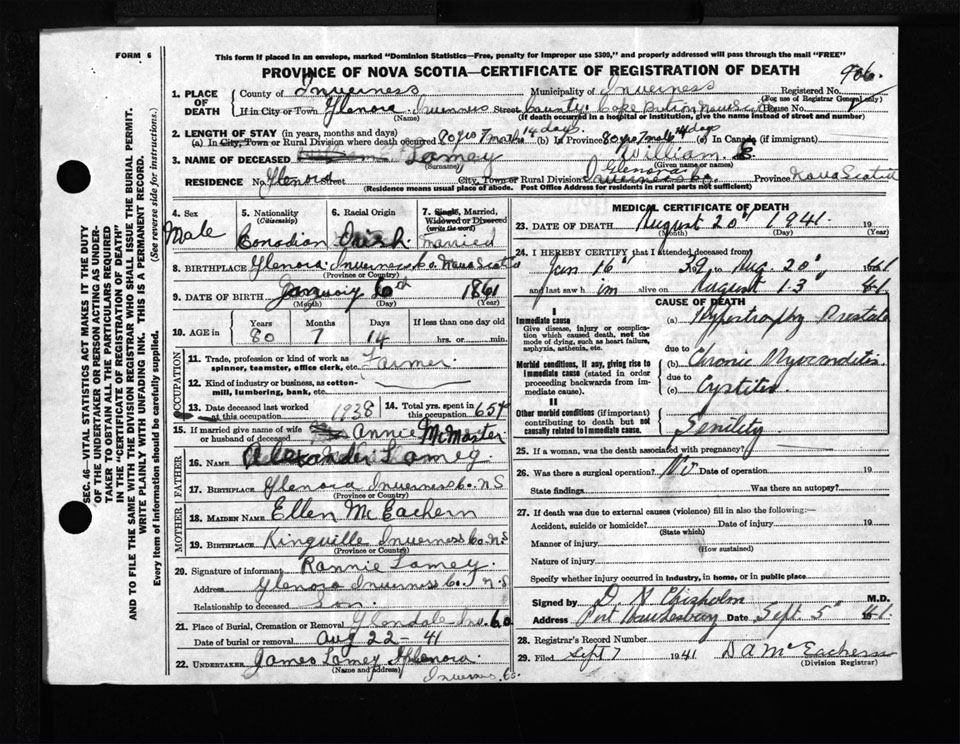 FORM 6
This form if placed in an envelope, marked "Dominion Statistics—Free, penalty for improper use $300," and properly addressed will pass through the mail "FREE"
PROVINCE OF NOVA SCOTIA—CERTIFICATE OF REGISTRATION OF DEATH
906.
SEC. 46—VITAL STATISTICS ACT MAKES IT THE DUTY
OF THE UNDERTAKER OR PERSON ACTING AS UNDER-
TAKER TO OBTAIN ALL THE PARTICULARS REQUIRED
IN THE "CERTIFICATE OF REGISTRATION OF DEATH"
AND TO FILE THE SAME WITH THE DIVISION REGISTRAR WHO SHALL ISSUE THE BURIAL PERMIT.
WRITE PLAINLY WITH UNFADING INK. THIS IS A PERMANENT RECORD.
Every item of information should be carefully supplied. (See reverse side for instructions.)
1. PLACE OF DEATH
County of Inverness Municipality of Inverness Registered No.
(For use of Registrar General only)
If in City or Town Glenora Inverness Street County Cape Breton Nova Scotia House No.
(Name) (If death occurred in a hospital or institution, give the name instead of street and number)
2. LENGTH OF STAY (in years, months and days)
(a) In City, Town or Rural Division where death occurred 80 yrs 7 mths 14 days. (b) In Province 80 yrs 7 mths 14 days (c) In Canada (if immigrant)
3. NAME OF DECEASED Lamey William
(Surname) (Given name or names)
RESIDENCE No. Glenora Street City, Town or Rural Division Glenora Inverness Co. Province Nova Scotia
(Residence means usual place of abode. Post Office Address for residents in rural parts not sufficient)
4. Sex Male
5. Nationality (Citizenship) Canadian
6. Racial Origin Irish
7. Single, Married, Widowed or Divorced (write the word) married
8. BIRTHPLACE Glenora Inverness Co. Nova Scotia
(Province or Country)
9. DATE OF BIRTH January 6th 1861
(Month) (Day) (Year)
10. AGE in Years 80 Months 7 Days 14 If less than one day old hrs. or min.
OCCUPATION
11. Trade, profession or kind of work as spinner, teamster, office clerk, etc. Farmer
12. Kind of industry or business, as cotton-mill, lumbering, bank, etc.
13. Date deceased last worked at this occupation 1938 14. Total yrs. spent in this occupation 65 yrs
15. If married give name of wife or husband of deceased Annie McMaster
FATHER
16. NAME Alexander Lamey
17. BIRTHPLACE Glenora Inverness Co. N S
(Province or Country)
MOTHER
18. MAIDEN NAME Ellen McEachern
19. BIRTHPLACE Kingville Inverness Co. N S
(Province or Country)
20. Signature of informant Rannie Lamey
Address Glenora Inverness Co. N.S
Relationship to deceased Son
21. Place of Burial, Cremation or Removal Glendale Inv. Co
Date of burial or removal Aug 22 - 41
22. UNDERTAKER James Lamey Glenora
(Name and address)
Inverness Co.
MEDICAL CERTIFICATE OF DEATH
23. DATE OF DEATH August 20" 1941. 19
(Month) (Day) (Year)
24. I HEREBY CERTIFY that I attended deceased from
Jan 16" 39 to Aug. 20" 1941
and last saw h im alive on August 13" 41
CAUSE OF DEATH
I
Immediate cause
Give disease, injury or complication which caused death, not the mode of dying, such as heart failure, asphyxia, asthenia, etc.
(a) Hypertrophy Prostate
due to
Morbid conditions, if any, giving rise to immediate cause (stated in order proceeding backwards from immediate cause).
(b) Chronic Myocarditis
due to
(c) Cystitis
II
Other morbid conditions (if important) contributing to death but not causally related to immediate cause.
Senility
25. If a woman, was the death associated with pregnancy?
26. Was there a surgical operation? No Date of operation 19
State findings Was there an autopsy?
27. If death was due to external causes (violence) fill in also the following:—
Accident, suicide or homicide? Date of injury 19
(State which)
Manner of injury
(How sustained)
Nature of injury
Specify whether injury occurred in industry, in home, or in public place
Signed by D. N Chisholm M.D.
Address Port Hawkesbury Date Sept. 5" 41
28. Registrar's Record Number
29. Filed Sept 7 1941 D A McEachern
(Division Registrar)